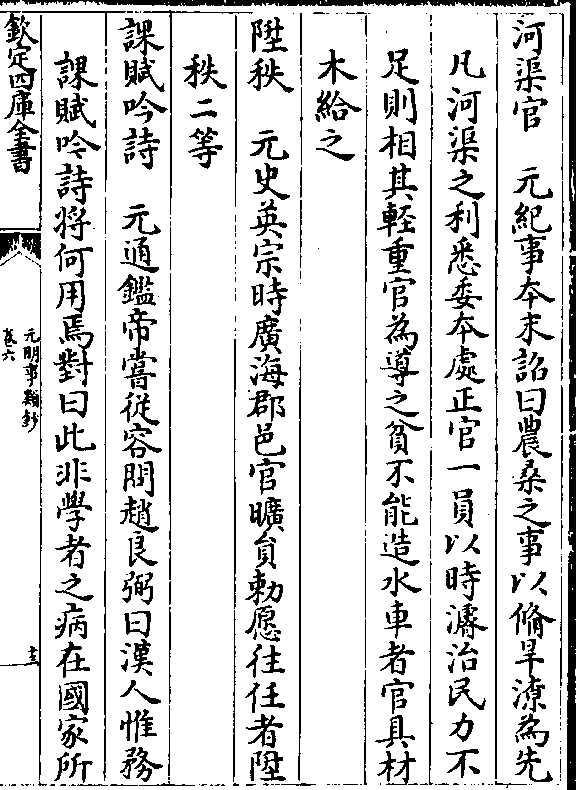 河渠官　元紀事本末詔曰農桑之事以備旱潦為先
凡河渠之利悉委本處正官一員以時濬治民力不
足則相其輕重官為導之貧不能造水車者官具材
木給之
陞秩　元史英宗時廣海郡邑官曠員勅愿往任者陞
秩二等
課賦吟詩　元通鑑帝嘗從容問趙良弼曰漢人惟務
課賦吟詩將何用焉對曰此非學者之病在國家所
欽定四庫全書
元明事類鈔
卷六
十三